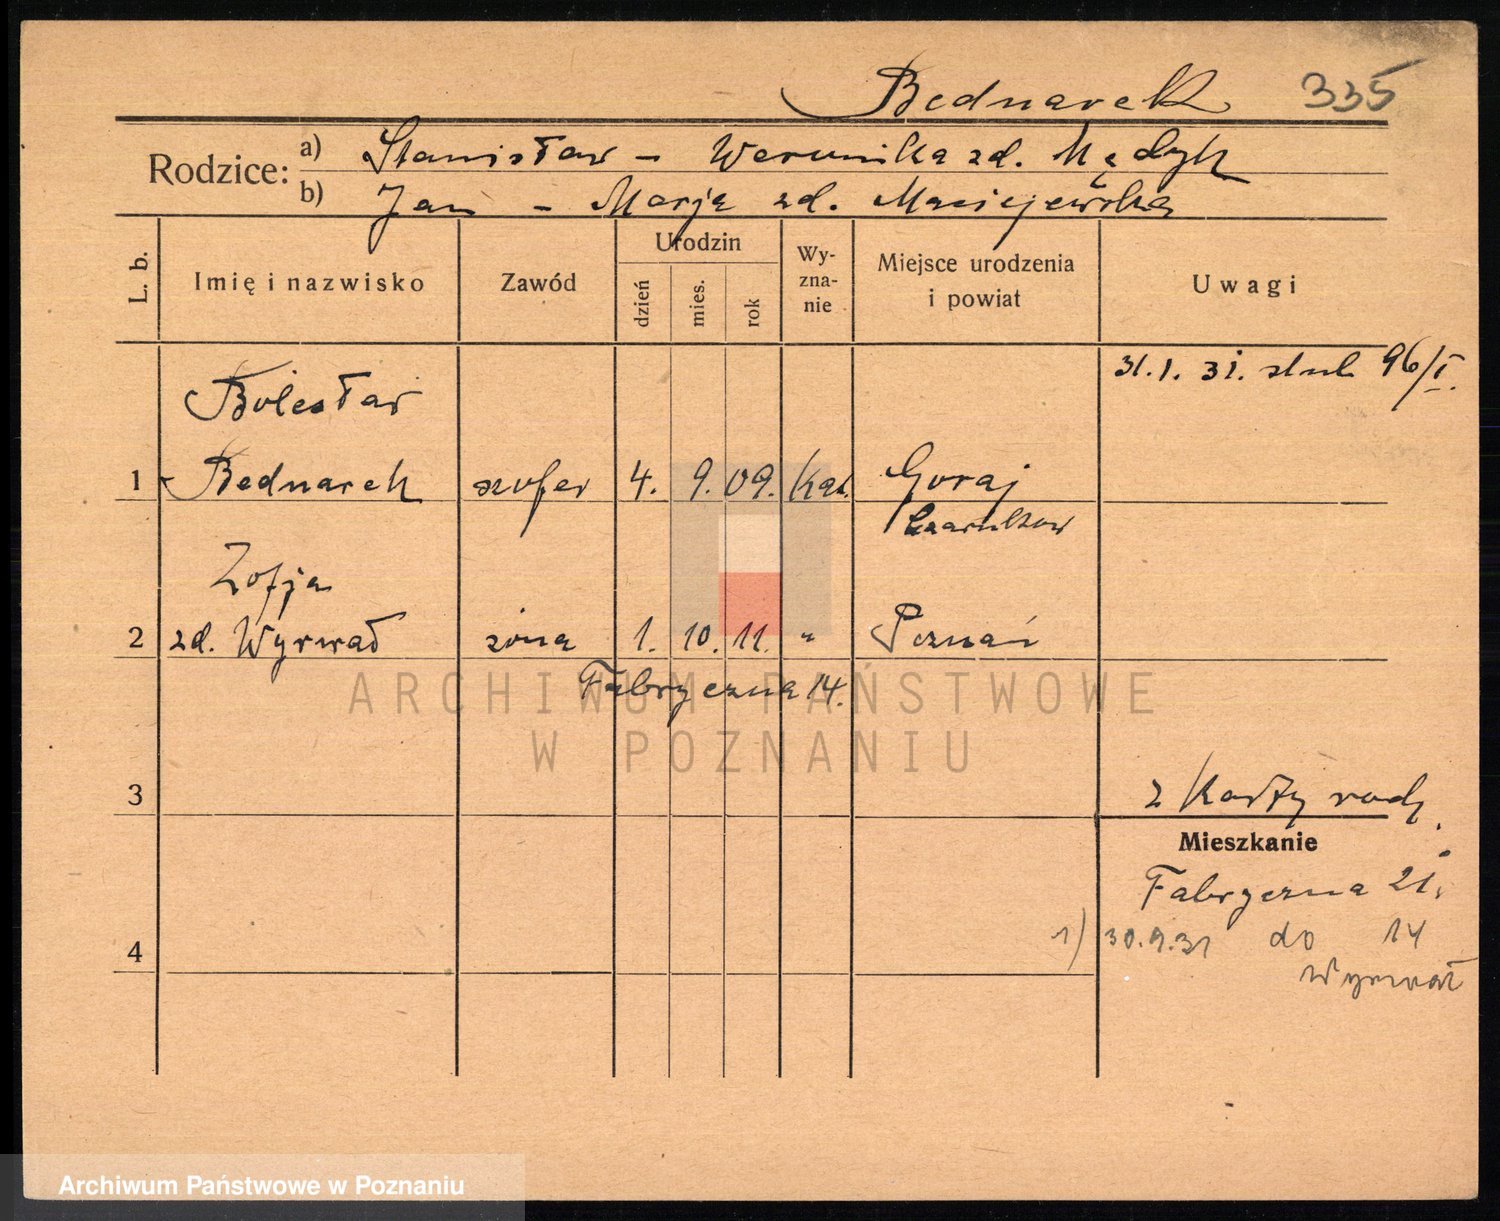 Bednarek 335
Rodzice: a) Stanisław – Weronika zd. Mędyk
b) Jan – Marja zd. Maciejewska
L. b. Imię i nazwisko Zawód Urodzin dzień mies. rok Wy-zna-nie Miejsce urodzenia i powiat Uwagi
31.1.31. ślub 96/I.
Bolesław
1 Bednarek szofer 4. 9. 09. Kat. Goraj
Czarnków
Zofja
2 zd. Wyrwał żona 1. 10. 11. " Poznań
Fabryczna 14.
ARCHIWUM PAŃSTWOWE
W POZNANIU
3 z Karty rodz.
Mieszkanie
Fabryczna 21.
4 1) 30.9.31 do 14
Wyrwał
Archiwum Państwowe w Poznaniu